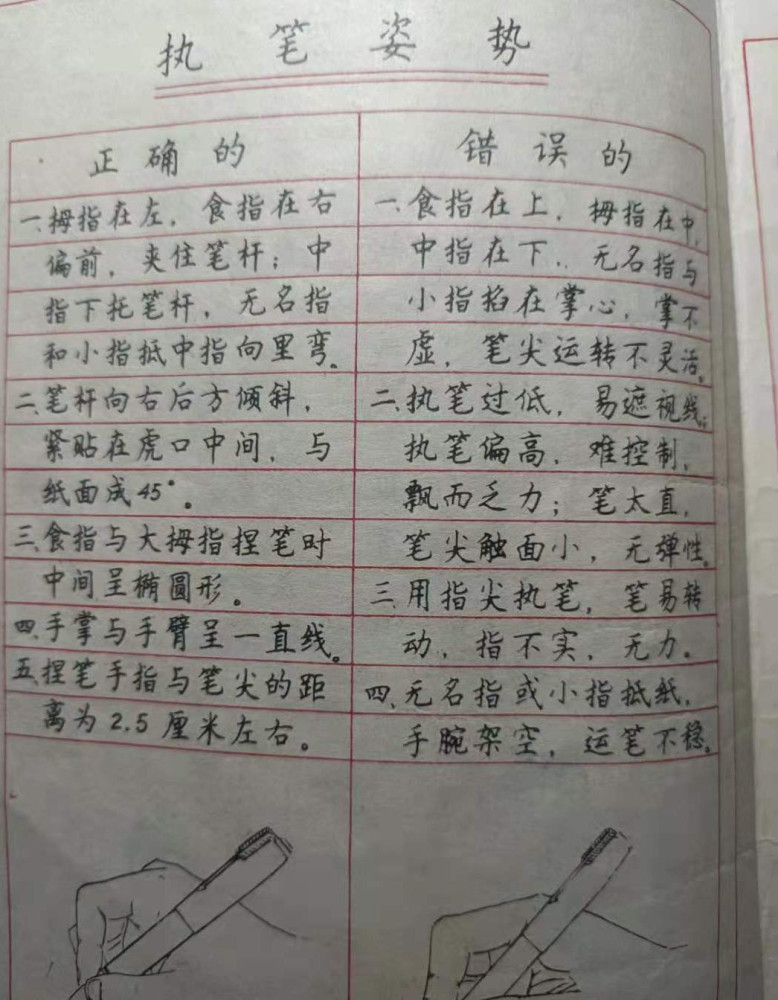 执笔姿势
正确的
一、拇指在左，食指在右
偏前，夹住笔杆；中
指下托笔杆，无名指
和小指抵中指向里弯。
二、笔杆向右后方倾斜，
紧贴在虎口中间，与
纸面成45°。
三、食指与大拇指捏笔时
中间呈椭圆形。
四、手掌与手臂呈一直线。
五、捏笔手指与笔尖的距
离为2.5厘米左右。
错误的
一、食指在上，拇指在中，
中指在下，无名指与
小指掐在掌心，掌不
虚，笔尖运转不灵活。
二、执笔过低，易遮视线；
执笔偏高，难控制，
飘而乏力；笔太直，
笔尖触面小，无弹性。
三、用指尖执笔，笔易转
动，指不实，无力。
四、无名指或小指抵纸，
手腕架空，运笔不稳。